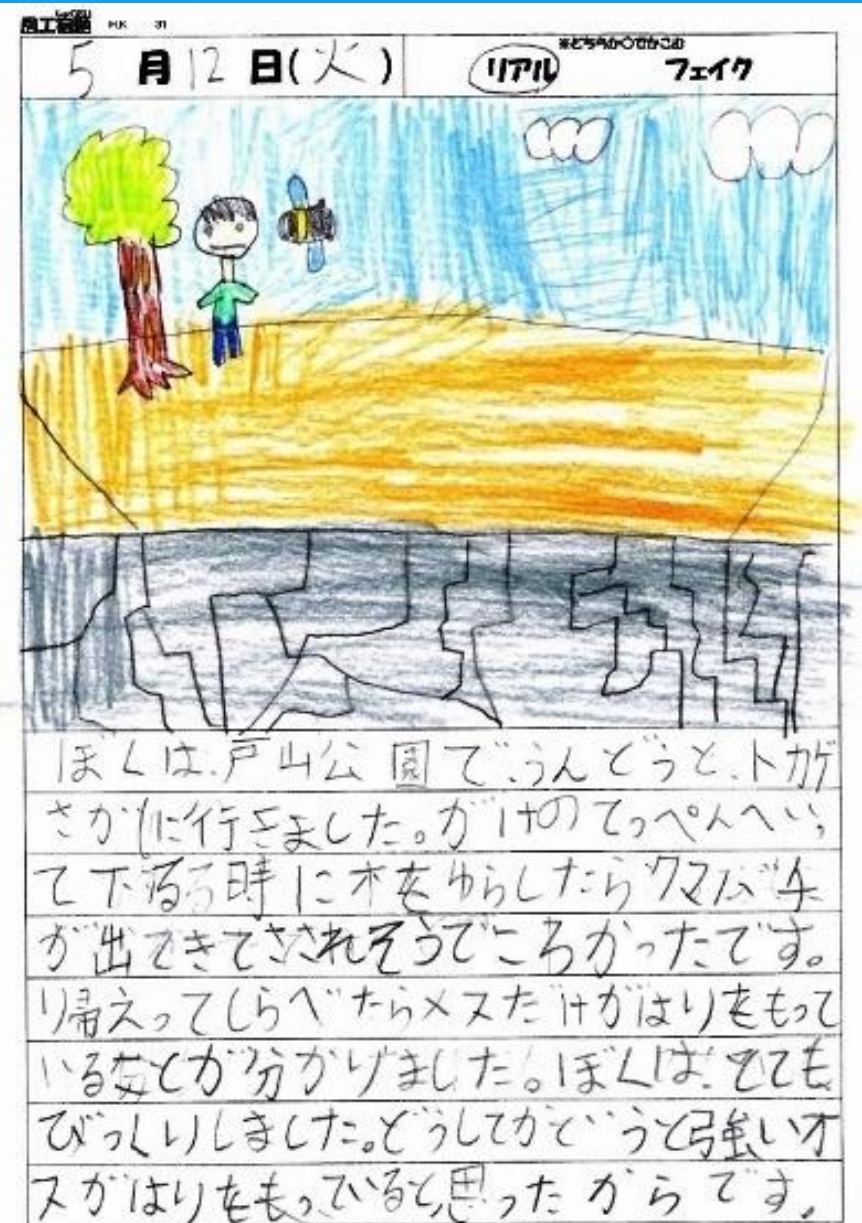 5月12日(火)
※どちらか○でかこむ
リアル フェイク
ぼくは、戸山公園で、うんどうと、トカゲ
さがしに行きました。がけのてっぺんへいっ
て下る時に木をゆらしたらクマバチ
が出てきてさされそうでこわかったです。
帰えってしらべたらメスだけがはりをもって
いることが分かりました。ぼくは、とても
びっくりしました。どうしてかというと強いオ
スがはりをもっていると思ったからです。